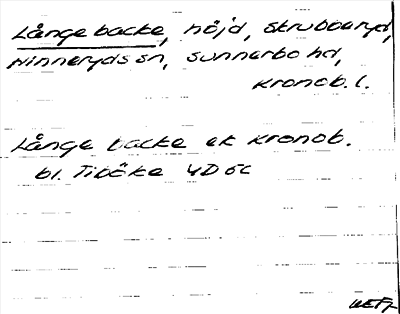 Långe backe, höjd, Skrubberyd,
Hinneryds sn, Sunnerbo hd,
Kronob. l.
Långe backe ek Kronob.
bl. Tiböke 4D 5c